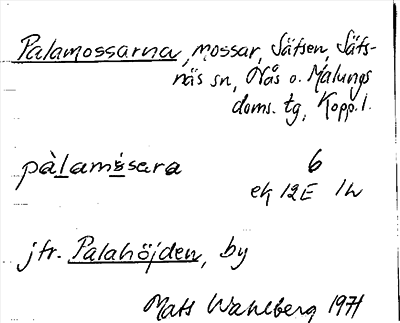 Palamossarna, mossar, Säfsen, Säfs-
näs sn, Nås o. Malungs
doms. tg, Kopp. l.
pàlamåsara 6
ek 12E 1h
jfr. Palahöjden, by
Mats Wahlberg 1971